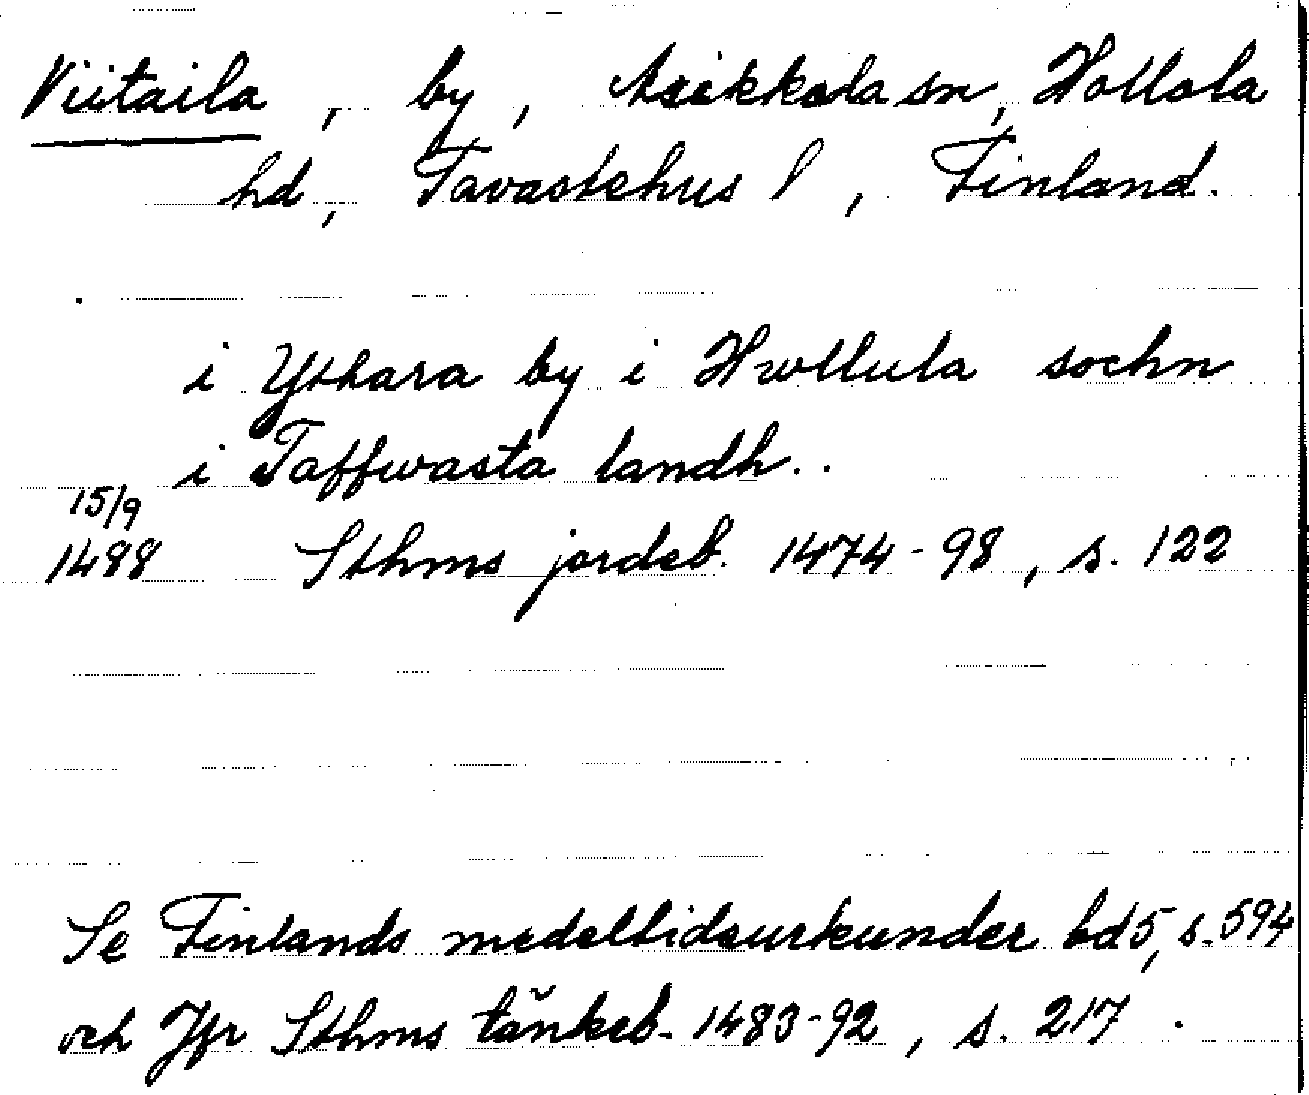 Viitaila, by, Asikkala sn, Hollola
hd, Tavastehus l, Finland.
i Ythara by i Hwllula sochn
i Taffwasta landh..
15/9
1488 Sthms jordeb. 1474-98, s. 122
Se Finlands medeltidsurkunder bd 5, s. 594
och Jfr Sthms tänkeb. 1483-92, s. 217.